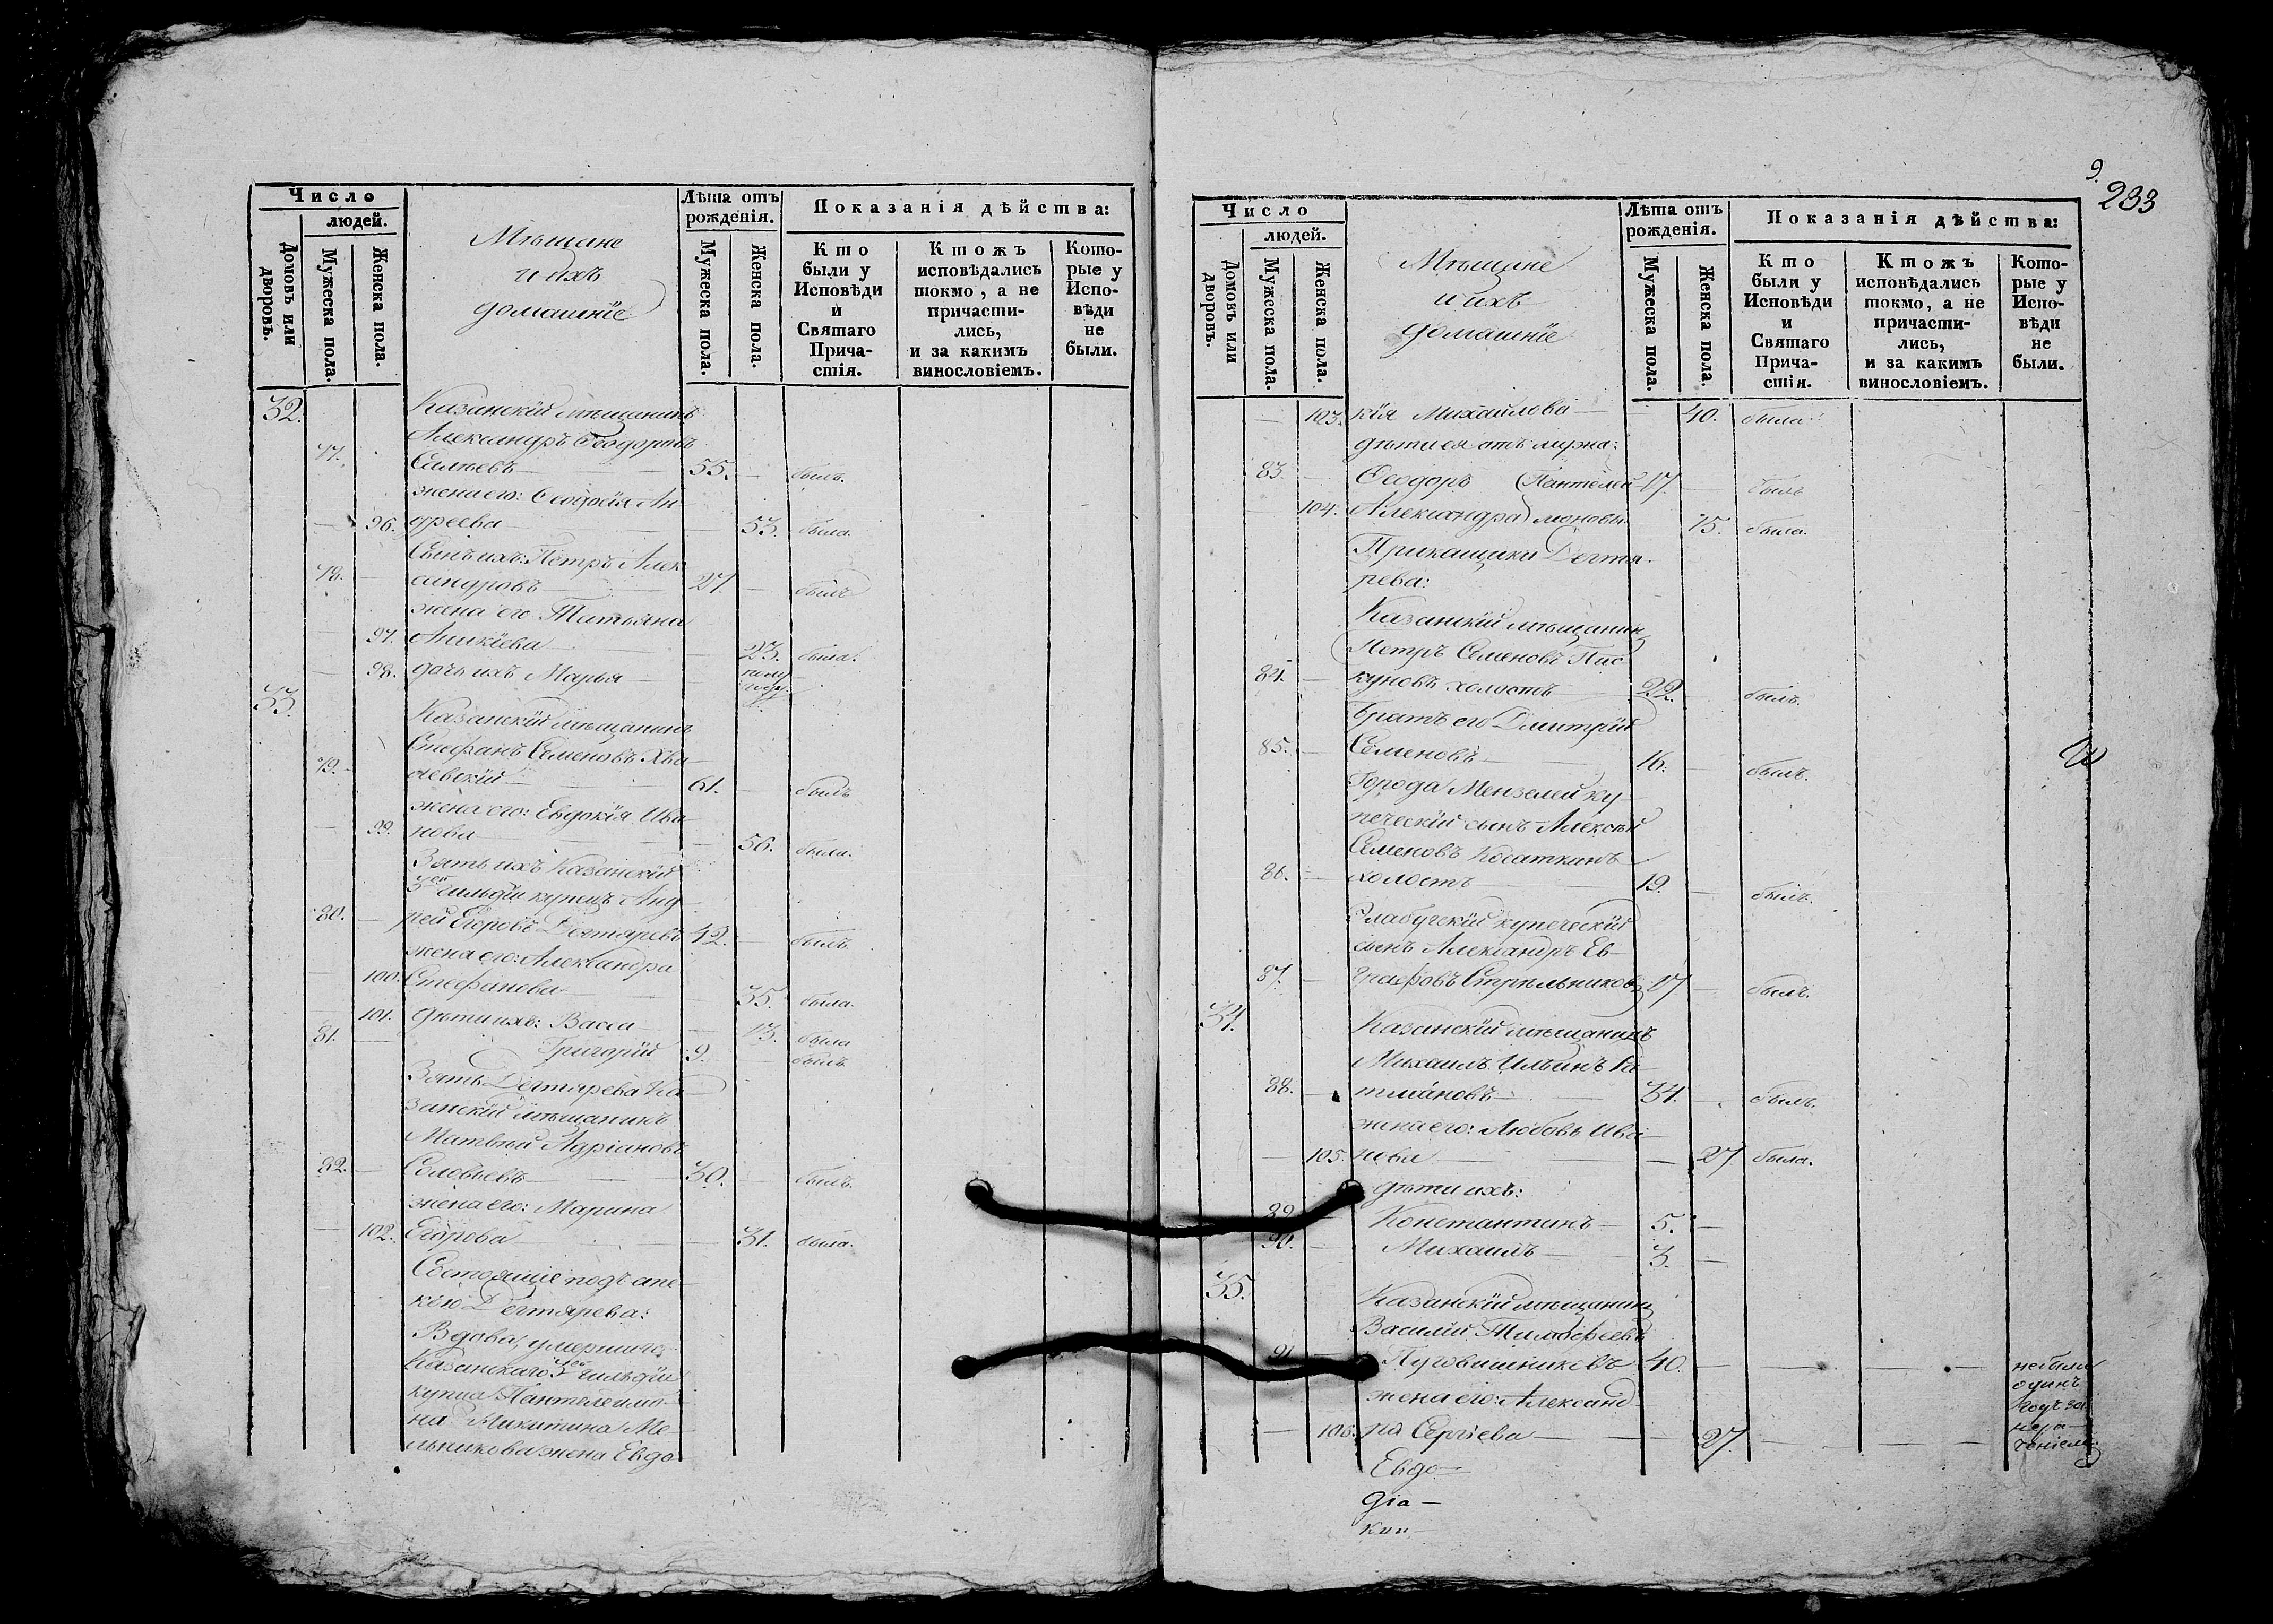 Число
людей.
Домовъ или дворовъ.
Мужеска пола.
Женска пола.
Мѣщане
и ихъ
домашніе
Лѣта отъ
рожденія.
Мужеска пола.
Женска пола.
Показанія дѣйства:
Кто были у Исповѣди и Святаго Прича-стія.
Ктожъ исповѣдались токмо, а не причасти-лись, и за какимъ винословіемъ.
Кото-рые у Испо-вѣди не были.
32. Казанскій мѣщанинъ
Александръ Ѳеодоровъ
77. 55. былъ.
жена его: Ан-
96. дреева 53. была.
Сынъ ихъ: Петръ Алек-
78. сандровъ 27. былъ
жена его Татьяна
97. Аникіева 23. была.
98. дочь ихъ Марья полу
года
33. Казанскій мѣщанинъ
Стефанъ Семеновъ Хва-
79. 61. былъ
жена его: Евдокія Ива-
99. нова 56. была.
Зять ихъ Казанскій
3ей гильдіи купецъ Анд-
80. рей Егоровъ Дегтяревъ 42. былъ
жена его: Александра
100. Стефанова 35. была.
101. дѣти ихъ: Васса 13. была
81. Григорій 9. былъ
Зять Дегтярева Ка-
занскій мѣщанинъ
Матвѣй Адріановъ
82. Соловьевъ 30. былъ.
жена его: Марина
102. Егорова 31. была.
Состоящіе подъ опе-
кою Дегтярева:
Вдова, умершаго
Казанскаго 3ей гильдіи
купца Пантелеимо-
на Никитина Ме-
льникова жена Евдо-
9.
233
Число
людей.
Домовъ или дворовъ.
Мужеска пола.
Женска пола.
Мѣщане
и ихъ
домашніе
Лѣта отъ
рожденія.
Мужеска пола.
Женска пола.
Показанія дѣйства:
Кто были у Исповѣди и Святаго Прича-стія.
Ктожъ исповѣдались токмо, а не причасти-лись, и за какимъ винословіемъ.
Кото-рые у Испо-вѣди не были.
103. кія Михайлова 40. была
дѣти ея отъ мужа:
83. Ѳеодоръ Пантелей- 17. былъ
104. Александра моновы 15. была.
Прикащики Дегтя-
рева:
Казанскій мѣщанинъ
Петръ Семеновъ Пис-
84. куновъ холостъ 22. былъ.
Братъ его Дмитрій
85. Семеновъ 16. былъ.
Города Мензелей ку-
печескій сынъ Алексѣй
Семеновъ Косаткинъ
86. холостъ 19. былъ.
Елабугскій купеческій
сынъ Александръ Ев-
87. графовъ Стрѣльниковъ 17 былъ.
34. Казанскій мѣщанинъ
Михаилъ Ильинъ
88. 34. былъ.
жена его: Любовь Ива-
105. нова 27 была.
дѣти ихъ:
89. Константинъ 5.
90. Михаилъ 3.
35. Казанскій мѣщанинъ
Василій Тимофеевъ
91 Пуговишниковъ 40. не были
одинъ
жена его: Александ- годъ за
нера-
106. ра Сергіева 27. ченіемъ
Евдо-